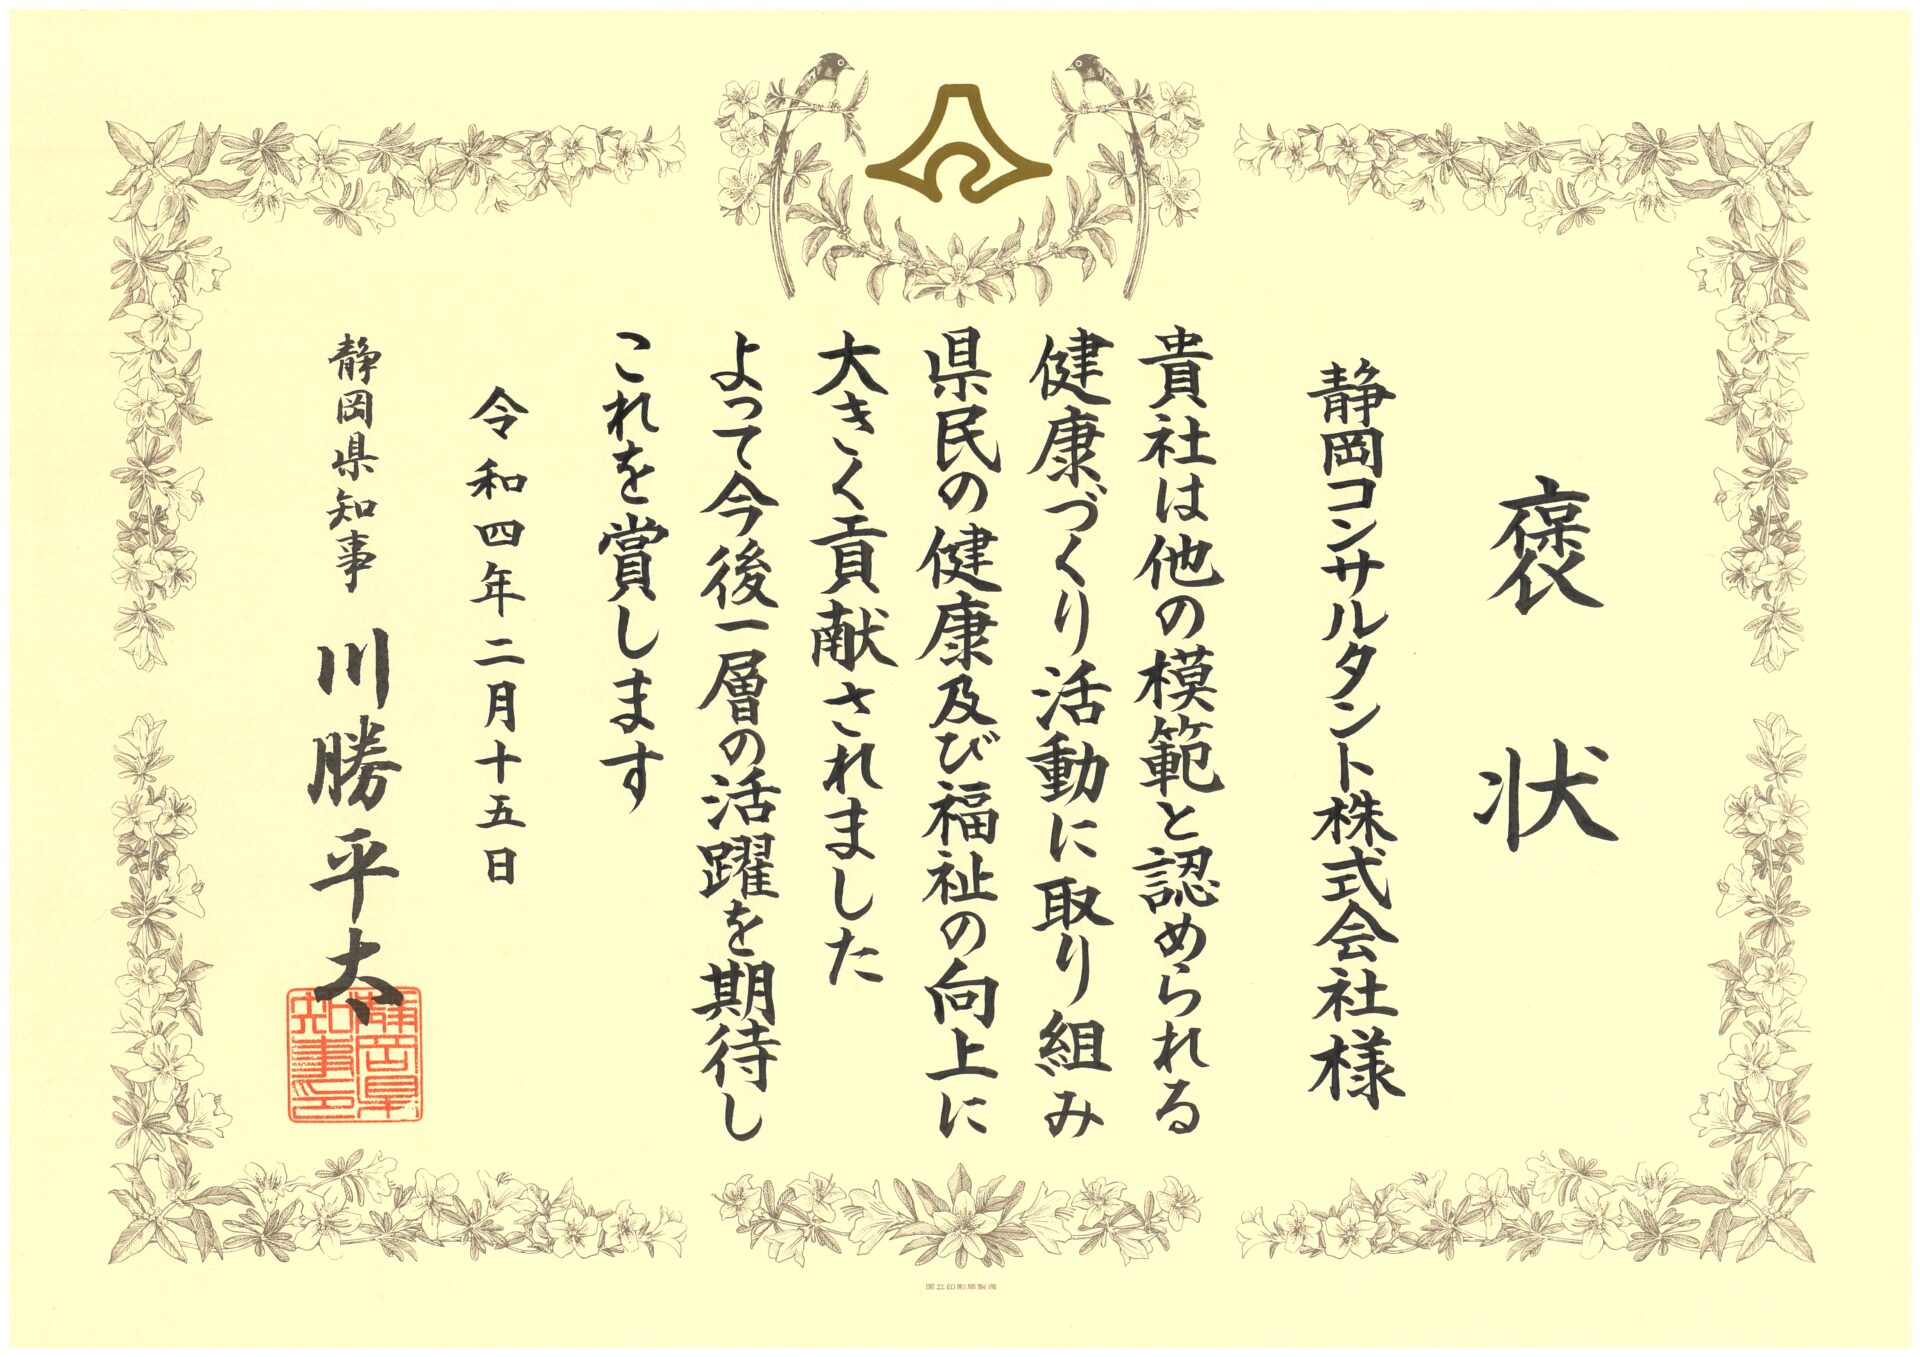 褒状
静岡コンサルタント株式会社様
貴社は他の模範と認められる
健康づくり活動に取り組み
県民の健康及び福祉の向上に
大きく貢献されました
よって今後一層の活躍を期待し
これを賞します
令和四年二月十五日
静岡県知事 川勝平太
静岡県知事印
国立印刷局製造